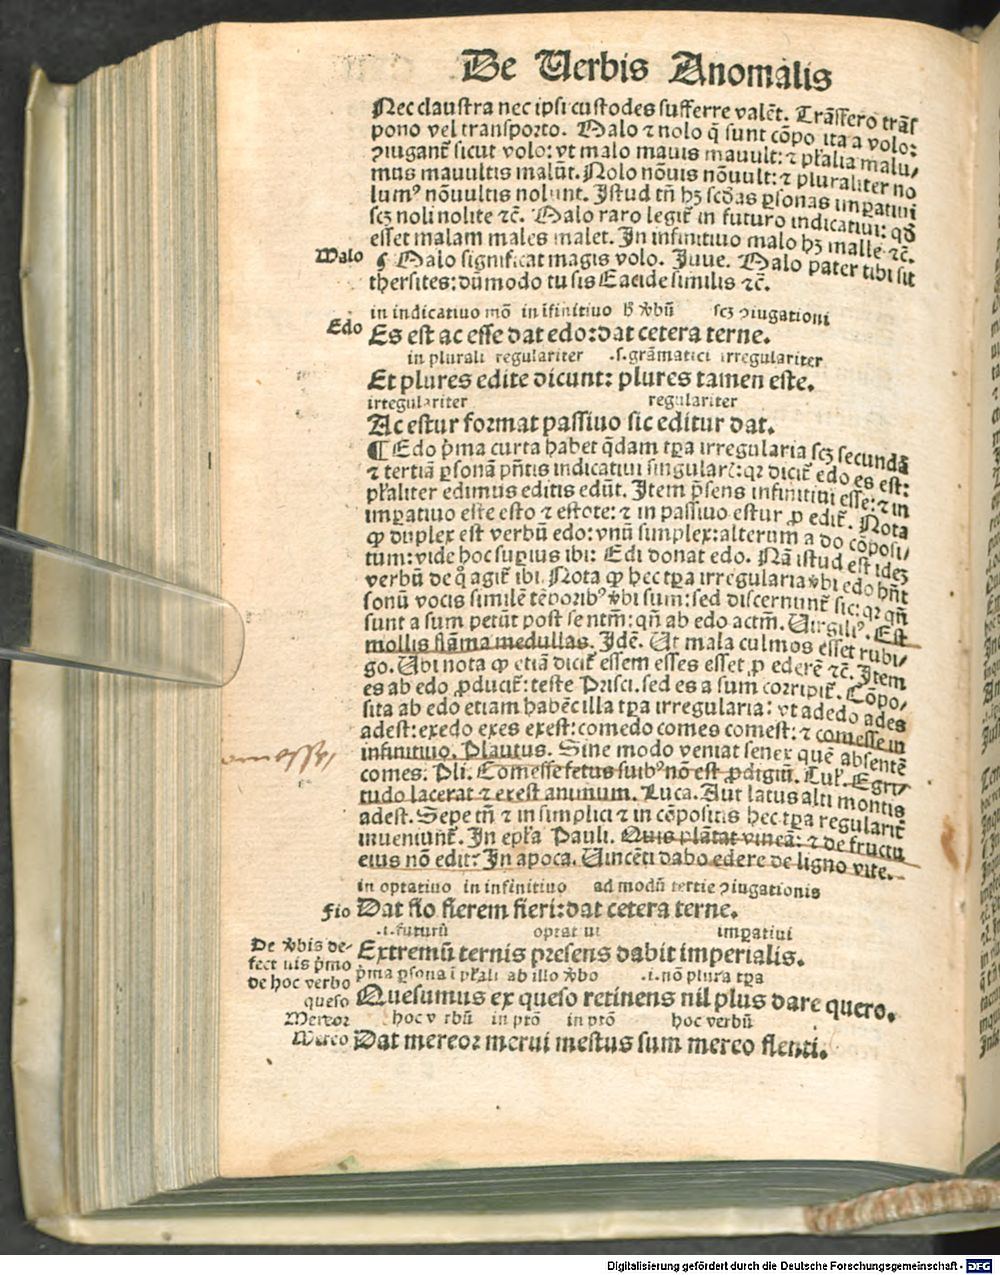 De Uerbis Anomalis
Nec claustra nec ipsi custodes sufferre valẽt. Trãsfero trãs
pono vel transporto. Malo ⁊ nolo q̃ sunt cõpoita a volo:
ꝯiugant̃ sicut volo: vt malo mauis mauult: ⁊ pl̃alia malu/
mus mauultis malũt. Nolo nõuis nõuult: ⁊ pluraliter no
lumꝰ nõuultis nolunt. Istud tñ hꝫ scd̃as ꝑsonas imꝑatiui
scꝫ noli nolite ⁊c̃. Malo raro legit̃ in futuro indicatiui: qđ
esset malam males malet. In infinitiuo malo hꝫ malle ⁊c̃.
Malo ¶ Malo significat magis volo. Iuue. Malo pater tibi sit
thersites: dũmodo tu sis Eacide similis ⁊c̃.
in indicatiuo mõ in ĩfinitiuo ħ v̾bũ scꝫ ꝯiugationi
Edo Es est ac esse dat edo: dat cetera terne.
in plurali regulariter .s. grãmatici irregulariter
Et plures edite dicunt: plures tamen este.
irregulariter regulariter
Ac estur format passiuo sic editur dat.
¶ Edo p̃ma curta habet q̃dam tꝑa irregularia scꝫ secundã
⁊ tertiã ꝑsonã pñtis indicatiui singulari: qꝛ dicit̃ edo es est:
pl̃aliter edimus editis edũt. Item p̃sens infinitiui esse: ⁊ in
imꝑatiuo este esto ⁊ estote: ⁊ in passiuo estur ꝓ edit̃. Nota
ꝙ duplex est verbũ edo: vnũ simplex: alterum a do cõposi/
tum: vide hoc suꝑius ibi: Edi donat edo. Nã istud est ideꝫ
verbũ de q̊ agit̃ ibi. Nota ꝙ hec tꝑa irregularia v̾bi edo hñt
sonũ vocis similẽ tẽporibꝰ v̾bi sum: sed discernunt̃ sic: qꝛ qñ
sunt a sum petũt post se ntm̃: qñ ab edo actm̃. Uirgiliꝰ. Est
mollis flãma medullas. Idẽ. Ut mala culmos esset rubi/
go. Ubi nota ꝙ etiã dicit̃ essem esses esset ꝓ ederẽ ⁊c̃. Item
es ab edo ꝓducit̃: teste Prisci. sed es a sum corripit̃. Cõpo/
sita ab edo etiam habẽt illa tꝑa irregularia: vt adedo ades
adest: exedo exes exest: comedo comes comest: ⁊ comesse in
infinitiuo. Plautus. Sine modo veniat senex quẽ absentẽ
comes. Pli. Comesse fetus suibꝰ nõ est ꝓdigiũ. Tul. Egri/
tudo lacerat ⁊ exest animum. Luca. Aut latus alti montis
adest. Sepe tñ ⁊ in simplici ⁊ in cõpositis hec tꝑa regularit̃
inueniunt̃. In epl̃a Pauli. Quis plãtat vineã: ⁊ de fructu
eius nõ edit: In apoca. Uincẽti dabo edere de ligno vite.
in optatiuo in infinitiuo ad modũ tertie ꝯiugationis
Fio Dat fio fierem fieri: dat cetera terne.
.i. futurũ optatiui imꝑatiui
De v̾bis de- Extremũ ternis presens dabit imperialis.
fectiuis p̃mo p̃ma ꝑsona ĩ pl̃ali ab illo v̾bo .i. nõ plura tꝑa
de hoc verbo
queso Quesumus ex queso retinens nil plus dare quero.
Mereor hoc verbũ in p̃tõ in p̃tõ hoc verbũ
Mereo Dat mereor merui mestus sum mereo flenti.
Digitalisierung gefördert durch die Deutsche Forschungsgemeinschaft - DFG